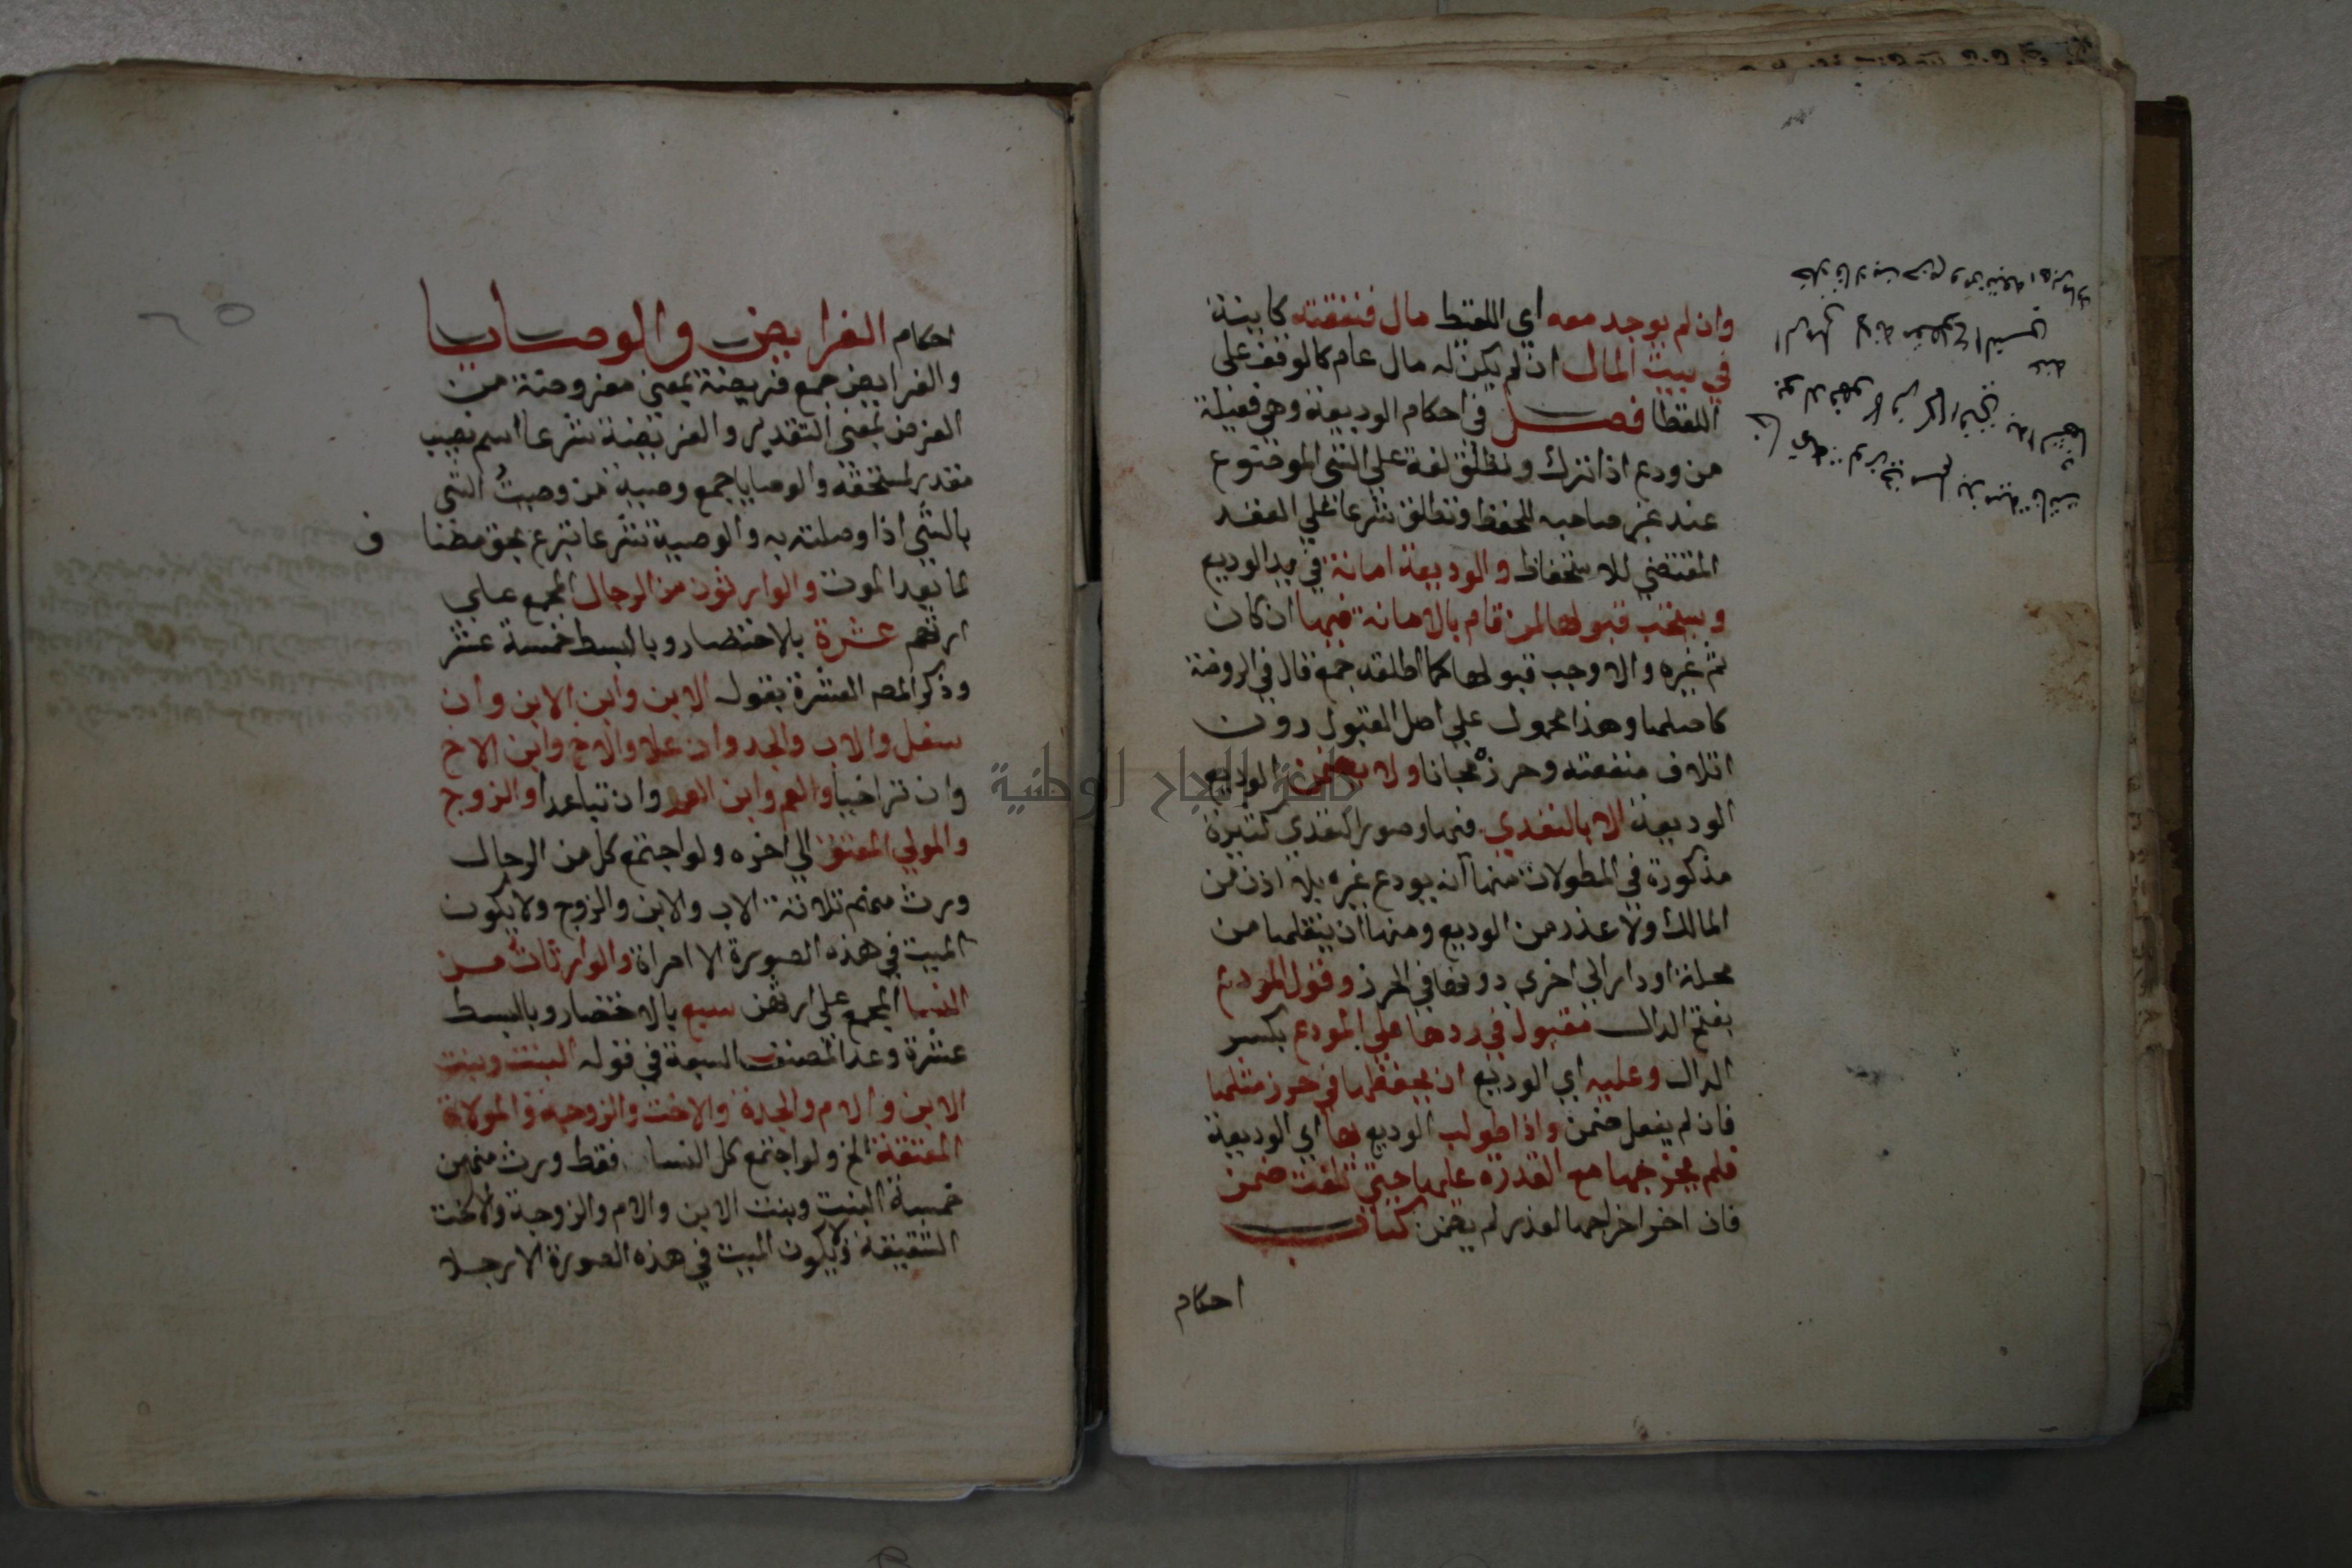 وان لم يوجد معه اي اللقيط مال فنفقته كاينة
في بيت المال ان لم يكن له مال عام كالوقف على
اللقطا فصل في احكام الوديعة وهي فعيلة
من ودع اذا ترك وتطلق لغة على الشي الموضوع
عند غير صاحبه للحفظ وتطلق شرعا على العقد
المقتضي للاستحفاظ والوديعة امانة في يد الوديع
ويستحب قبولها لمن قام بالامانة فيها ان كان
ثم غيره والا وجب قبولها كما اطلقه جمع قال في الروضة
كاصلها وهذا محمول على اصل القبول دون
اتلاف منفعته وحرزه مجانا ولا يضمن الوديع
الوديعة الا بالتعدي فيها وصور التعدي كثيرة
مذكورة في المطولات منها ان يودع غيره بلا اذن من
المالك ولا عذر من الوديع ومنها ان ينقلها من
محلة او دار الى اخرى دونها في الحرز وقول المودع
بفتح الدال مقبول في ردها على المودع بكسر
الدال وعليه اي الوديع ان يحفظها في حرز مثلها
فان لم يفعل ضمن واذا طولب الوديع بها اي الوديعة
فلم يخرجها مع القدرة عليها حتى تلفت ضمن
فان اخر اخراجها لعذر لم يضمن كتاب
احكام
جامعة النجاح الوطنية
احكام الفرايض والوصايا
والفرايض جمع فريضة بمعنى مفروضة من
الفرض بمعنى التقدير والفريضة شرعا اسم نصيب
مقدر لمستحقه والوصايا جمع وصية من وصيت الشي
بالشي اذا وصلته به والوصية شرعا تبرع بحق مضا ف
لما بعد الموت والوارثون من الرجال المجمع على
ارثهم عشرة بالاختصار وبالبسط خمسة عشر
وذكر المص العشرة بقوله الابن وابن الابن وان
سفل والاب والجد وان علا والاخ وابن الاخ
وان تراخيا والعم وابن العم وان تباعدا والزوج
والمولى المعتق الى اخره ولو اجتمع كل من الرجال
ورث منهم ثلاثة الاب والابن والزوج ولا يكون
الميت في هذه الصورة الا امراة والوارثات من
النسا المجمع على ارثهن سبع بالاختصار وبالبسط
عشرة وعد المصنف السبعة في قوله البنت وبنت
الابن والام والجدة والاخت والزوجة والمولاة
المعتقة الخ ولو اجتمع كل النسا فقط ورث منهن
خمسة البنت وبنت الابن والام والزوجة والاخت
الشقيقة ولا يكون الميت في هذه الصورة الا رجلا